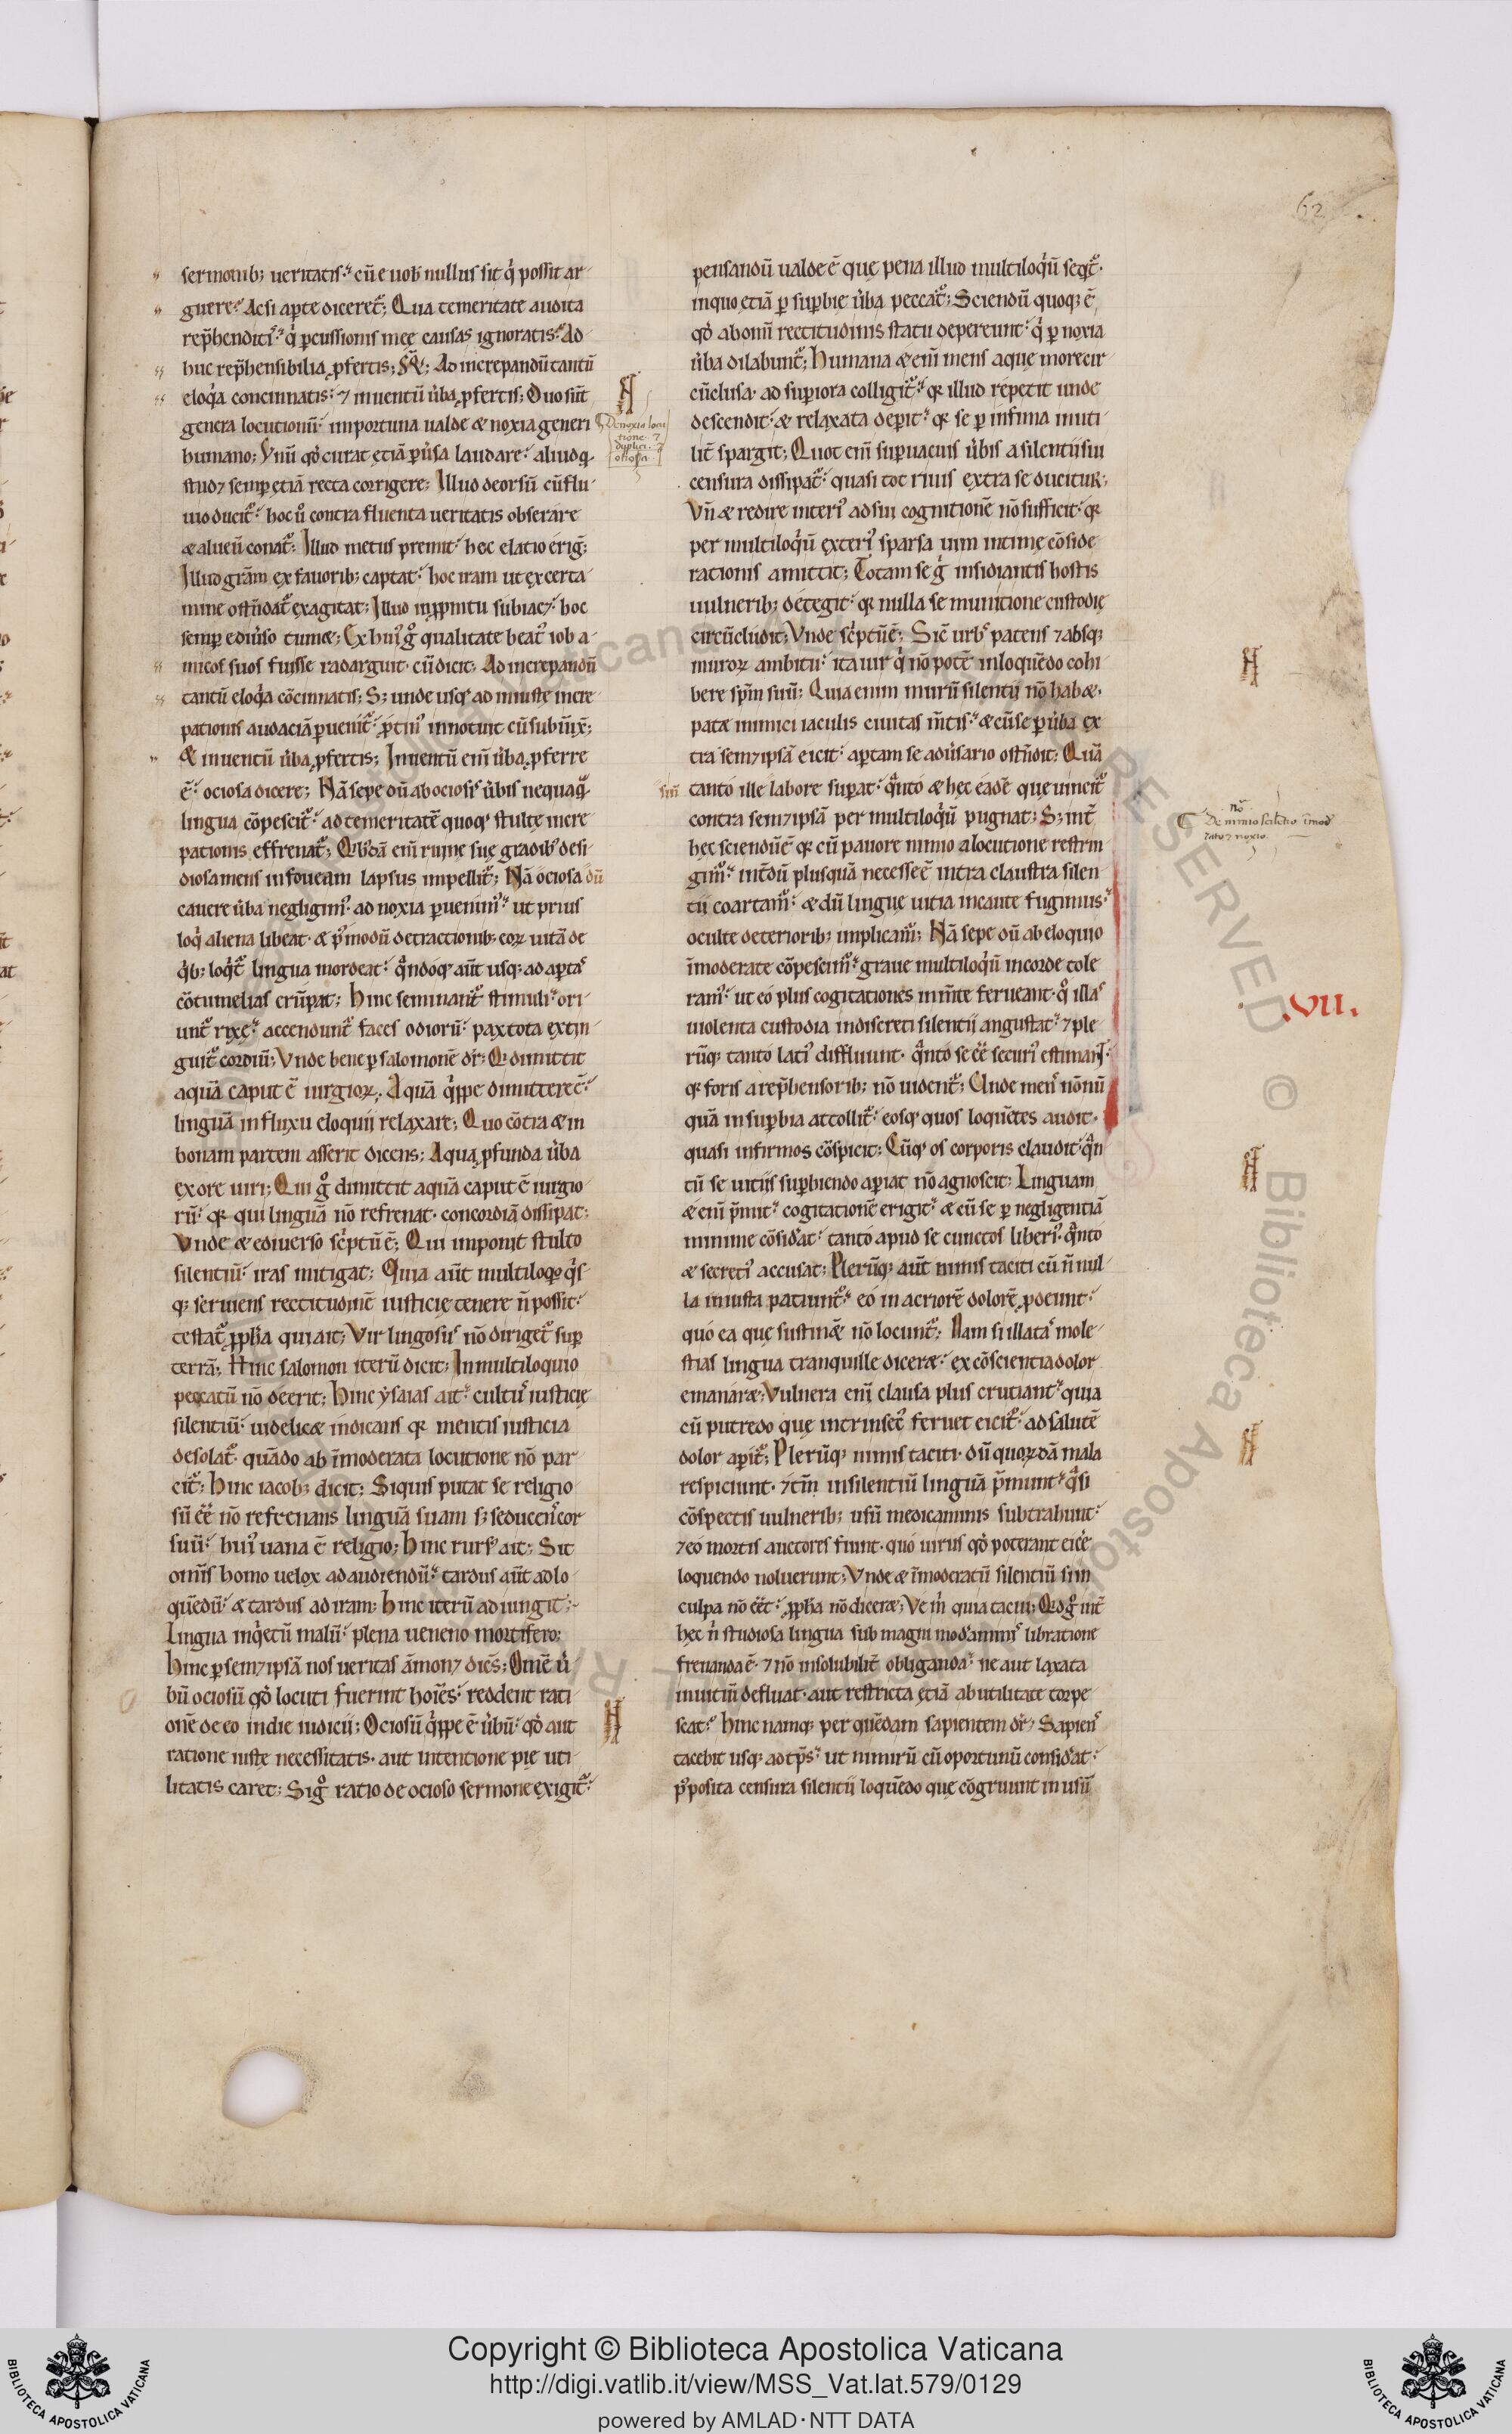 62
sermonib; ueritatis. cū e uob nullus sit q̇ possit ar
guere. Acsi aꝑte diceret᷑; Qua temeritate audita
rep̄henditis. q̇ ꝑcussionis meę causas ignoratis. Ad
huc rep̄hensibilia ꝓfertis; Ad increpandū tantū
eloq̇a concinnatis. ⁊ inuentū u̇ba ꝓfertis; Duo sūt
genera locutionū. importuna ualde & noxia generi
humano; Vnū qd̓ curat ętiā ꝑu̇sa laudare. aliud q̨
stud⁊ semꝑ ętiā recta corrigere; Illud deorsū cū flu
uio ducit᷑. hoc u̇ contra fluenta ueritatis obserare
& alueū conat᷑; Illud metus premit. hoc elatio erig̃;
Illud gr̄am ex fauorib; captat. hoc iram ut ex certa
mine ostn̄dat᷑ exagitat; Illud in ꝓmptu subiac⁊. hoc
semꝑ ediu̇so tum&; Ex hui᷒ gͦ qualitate beat᷒ iob a
micos suos fuisse redarguit. cū dicit; Ad increpandū
tantū eloq̇a cōcinnatis; S; unde usq; ad iniustę incre
pationis audaciā ꝑuenit᷑. ꝓtin᷒ innotuit cū subiūx̄;
& inuentū u̇ba ꝓfertis; Inuentū eni̅ u̇ba ꝓferre
ē. ociosa dicere; Nā sępe dū ab ociosis u̇bis nequaq̄
lingua cōpescit᷑. ad temeritatē quoq; stultę incre
pationis effrenat᷑; Qb᷒dā eni̅ ruinę suę gradib᷒ desi
diosa mens in foueam lapsus impellit᷑; Nā ociosa dū
cauere u̇ba negligim᷒. ad noxia ꝑuenim᷒. ut prius
loq̇ aliena libeat. & p᷒modū detractionib; eoꝝ uitā de
q̇b; loq̇t᷑ lingua mordeat. q̄ndoq; aūt usq; ad aꝑtas
cōtumelias erūpat; Hinc seminant᷑ stimuli. ori
unt᷑ rixę. accendunt᷑ faces odiorū. pax tota extin
guit᷑ cordiū; Vnde bene ꝑ salomonē dr̄; Q dimittit
aquā caput ē iurgioꝝ. Aquā q̇ppe dimittere ē.
linguā in fluxu eloquii relaxare; Quo cōtra & in
bonam partem asserit dicens; Aqua ꝓfunda u̇ba
ex ore uiri; Qui gͦ dimittit aquā caput ē iurgio
rū. q̨ qui linguā nō refrenat. concordiā dissipat;
Vnde & ediuerso sc̓ptū ē; Qui imponit stulto
silentiū. iras mitigat; Quia aūt multiloq̨o q̇s
q; seruiens rectitudinē iusticię tenere n̄ possit.
testat᷑ ꝓph̄a qui ait; Vir lingosus nō diriget᷑ suꝑ
terrā; Hinc salomon iterū dicit; In multiloquio
peccatū nō deerit; Hinc ẏsaias ait. cultus iusticię
silentiū. uidelic& indicans q̨ mentis iusticia
desolat᷑. quādo ab īmoderata locutione nō par
cit᷑; Hinc iacob; dicit; Siquis putat se religio
sū eē nō refrenans linguā suam s; seducens cor
suū. hui᷒ uana ē religio; Hinc rurs᷒ ait; Sit
om̄is homo uelox ad audiendū. tardus aūt ad lo
quēdū. & tardus ad iram; Hinc iterū adiungit;
Lingua inq̇etū malū. plena ueneno mortifero;
Hinc ꝑ sem⁊ipsā nos ueritas āmon⁊ dicēs; Omē u̇
bū ociosū qd̓ locuti fuerint hoīes. reddent rati
onē de eo in die iudicii; Ociosū q̇ppe ē u̇bū. qd̓ aut
ratione iustę necessitatis. aut intentione pię uti
litatis caret; Si gͦ ratio de ocioso sermone exigit᷑.
De noxia locu
tione ⁊
duplici. ⁊
otiosa
pensandū ualde ē quę pena illud multiloq̇ū seq̇t᷑.
in quo ętiā ꝑ suꝑbię u̇ba peccat᷑; Sciendū quoq; ē
qd̓ ab omi̅ rectitudinis statu depereunt. q̇ ꝑ noxia
u̇ba dilabunt᷑; Humana &eni̅ mens aquę more cir
cūclusa. ad suꝑiora colligit᷑. q̨ illud repetit unde
descendit. & relaxata deꝑit. q̨ se ꝑ infima inuti
lit̄ spargit; Quot eni̅ suꝑuacuis u̇bis a silentii sui
censura dissipat᷑. quasi tot riuis extra se ducitur;
Vn̄ & redire interi᷒ ad sui cognitionē nō sufficit. q̨
per multiloq̇ū exteri᷒ sparsa uim intimę cōside
rationis amittit; Totam se gͦ insidiantis hostis
uulnerib; detegit. q̨ nulla se munitione custodię
circūcludit; Vnde sc̓ptū ē; Sic̄ urbs patens ⁊ absq;
muroꝝ ambitu. ita uir q̇ nō potē in loquēdo cohi
bere spm̄ suū; Quia enim murū silentii nō hab&.
pat& inimici iaculis ciuitas m̄tis. & cū se ꝑ u̇ba ex
tra sem⁊ipsā eicit. aꝑtam se adu̇sario ostn̄dit; Quā
tanto ille labore suꝑat. q̄nto & hęc eadē quę uincit᷑
contra sem⁊ipsā per multiloq̇ū pugnat; S; int̄
hec sciendū ē q̨ cū pauore nimio a locutione restrin
gim᷒. int̄dū plusquā necesse ē intra claustra silen
tii coartam᷒. & dū linguę uitia incaute fugimus.
oculte deteriorib; implicam᷒; Nā sępe dū ab eloquio
īmoderate cōpescim᷒. graue multiloq̇ū in corde tole
ram᷒. ut eo plus cogitationes in m̄te ferueant. qͦ illas
uiolenta custodia indiscreti silentii angustat. ⁊ ple
rūq; tanto lati᷒ diffluunt. q̄nto se eē securi᷒ estimant.
q̨ foris a rep̄hensorib; nō uident᷑; Vnde mens nōnū
quā in suꝑbia attollit᷑. eosq; quos loquētes audit.
quasi infirmos cōspicit; Cūq; os corporis claudit. q̄n
tū se uitiis suꝑbiendo aꝑiat nō agnoscit; Linguam
&eni̅ p̄mit. cogitationē erigit. & cū se ꝑ negligentiā
minime cōsid̓at. tanto apud se cunctos liberi᷒. q̄nto
& secreti᷒ accusat; Plerūq; aūt nimis taciti cū n̄nul
la iniusta patiunt᷑. eo in acriorē dolorē ꝓdeunt.
quo ea quę sustin& nō locunt᷑; Nam si illatas mole
stias lingua tranquille dicer&. ex cōscientia dolor
emanar&; Vulnera eni̅ clausa plus cruciant. quia
cū putredo quę intrinsec᷒ feruet eicit᷑. ad salutē
dolor aꝑit᷑; Plerūq; nimis taciti. dū quoꝝdā mala
respiciunt. ⁊tm̄ in silentiū linguā p̄munt. q̄si
cōspectis uulnerib; usū medicaminis subtrahunt.
⁊ eo mortis auctores fiunt. quo uirus qd̓ poterant eicėe
loquendo noluerunt; Vnde & īmoderatū silentiū si in
culpa nō eēt. ꝓph̄a nō dicer&; Ve m̓ quia tacui; Qd̓ gͦ int̄
hec n̓ studiosa lingua sub magni mod̓aminis libratione
frenanda ē. ⁊ nō insolubilit̄ obliganda. ne aut laxata
in uitiū defluat. aut restricta ętiā ab utilitate torpe
scat. Hinc namq; per quēdam sapientem dr̄; Sapiens
tacebit usq; ad tp̄s. ut nimirū cū oportunū consid̓at.
p᷒posita censura silentii loquēdo quę cōgruunt in usū
nō
De nimio silētio īmod
rato ⁊ noxio
.VII.
Copyright © Biblioteca Apostolica Vaticana
http://digi.vatlib.it/view/MSS_Vat.lat.579/0129
powered by AMLAD·NTT DATA
BIBLIOTECA APOSTOLICA VATICANA
BIBLIOTECA APOSTOLICA VATICANA